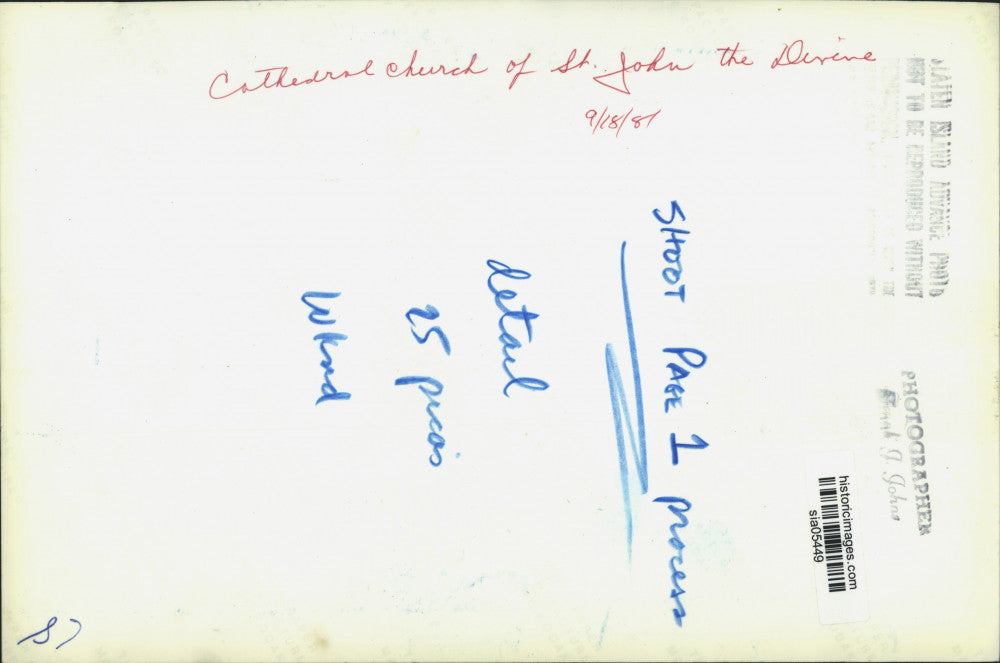 Cathedral Church of St. John the Divine
9/18/81
SHOOT PAGE 1 process
detail
25 picas
Wknd
STATEN ISLAND ADVANCE PHOTO
NOT TO BE REPRODUCED WITHOUT
PHOTOGRAPHER
Frank J. Johns
historicimages.com
sia05449